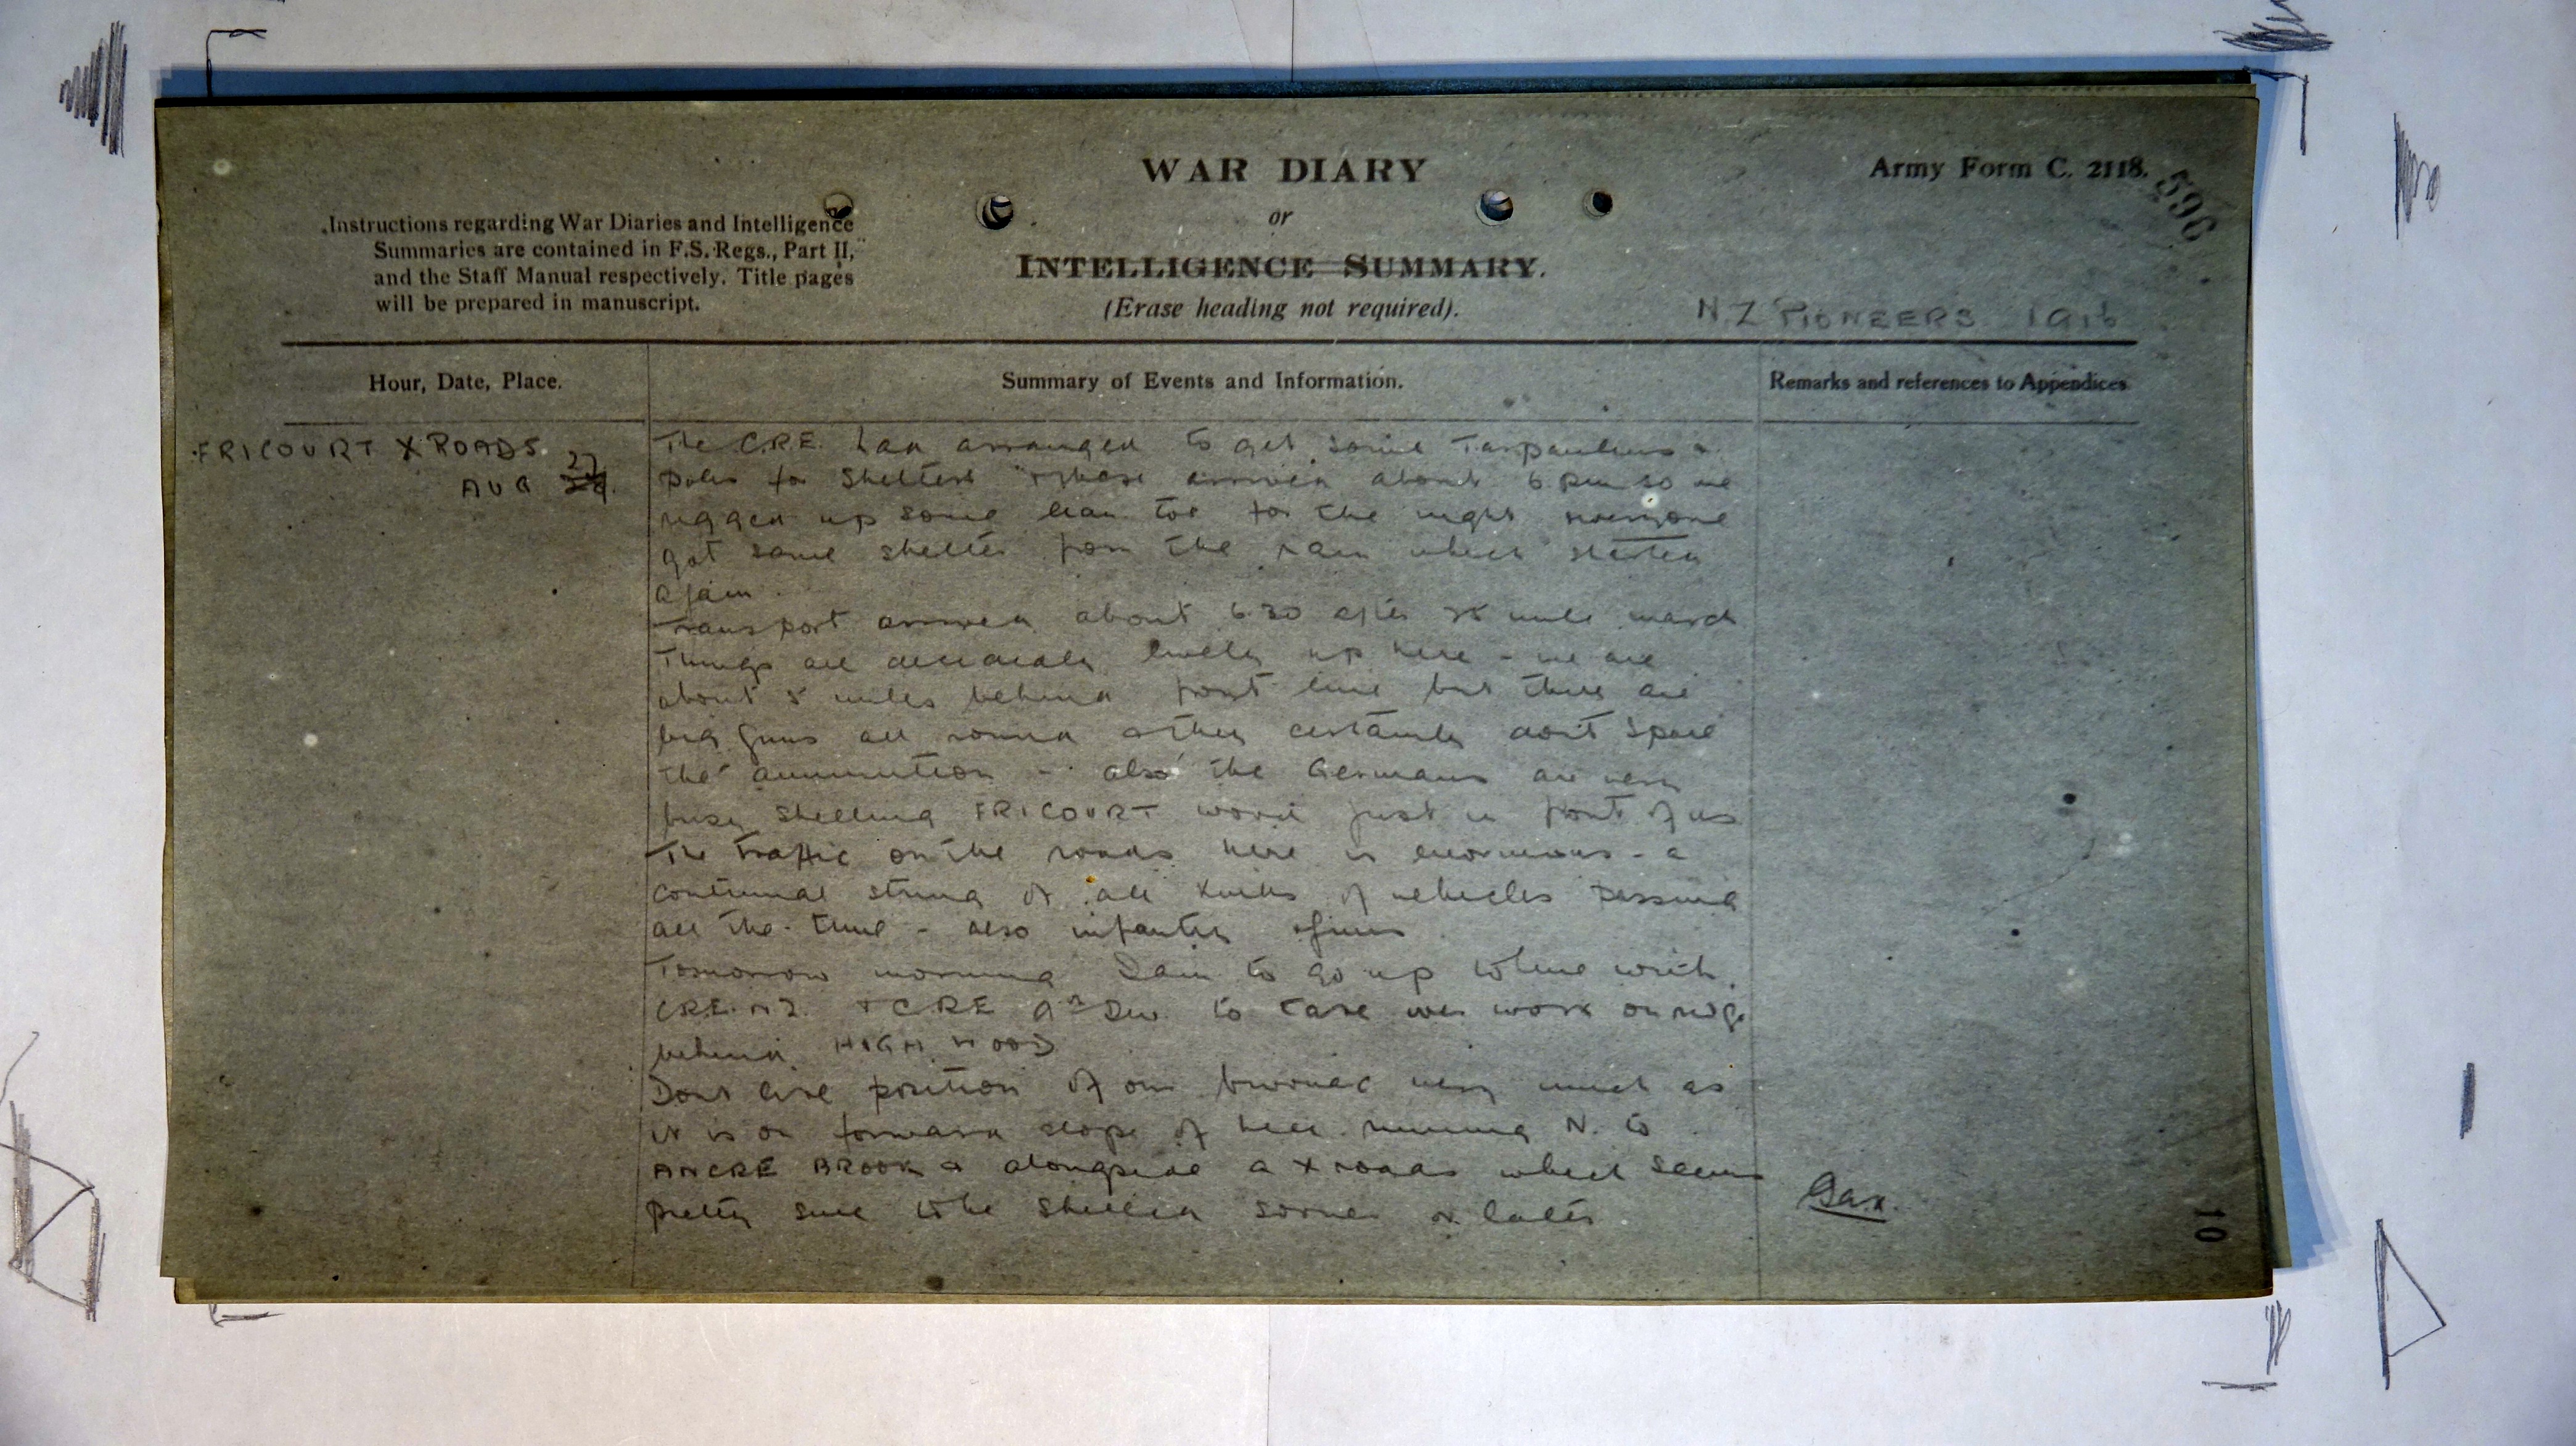 WAR DIARY
or
INTELLIGENCE SUMMARY.
(Erase heading not required).
Army Form C. 2118.
596
Instructions regarding War Diaries and Intelligence
Summaries are contained in F.S. Regs., Part II,
and the Staff Manual respectively. Title pages
will be prepared in manuscript.
N.Z PIONEERS 1916
Hour, Date, Place.
Summary of Events and Information.
Remarks and references to Appendices
FRICOURT X ROADS.
AUG 27
The C.R.E. had arranged to get some Tarpaulins &
poles for Shelters & these arrived about 6 pm so we
rigged up some lean toe for the night & everyone
got some shelter from the rain which started
again.
Transport arrived about 6.30 after mile march
Things are decidedly lively up here - we are
about 5 miles behind front line but there are
big guns all round & they certainly don't spare
the ammunition - also the Germans are very
busy shelling FRICOURT wood just in front of us
The traffic on the roads here is enormous - a
continual string of all kinds of vehicles passing
all the time - also infantry & guns
Tomorrow morning I am to go up to line with
C.R.E. N.Z. & CRE Div. to take over work on ridge
behind HIGH WOOD
Dont like position of our bivouac very much as
it is on forward slope of hill running N. to
ANCRE BROOK & alongside a X roads which seems
pretty sure to be shelled sooner or later.
10